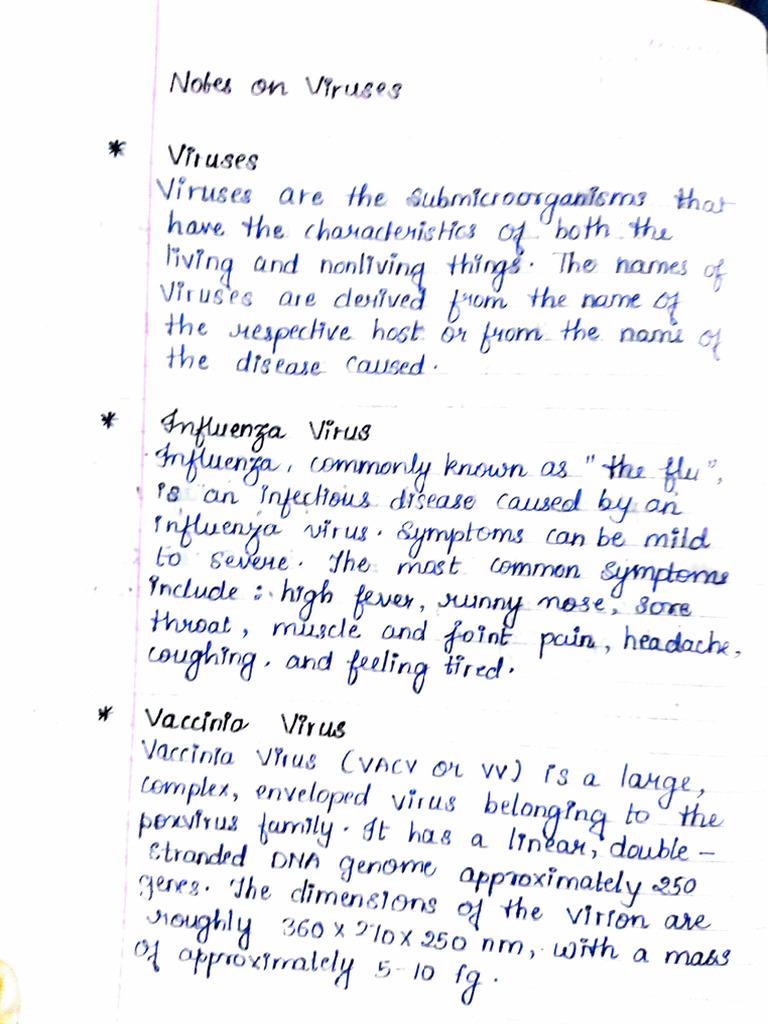 Notes on Viruses
* Viruses
Viruses are the submicroorganisms that
have the characteristics of both the
living and nonliving things. The names of
Viruses are derived from the name of
the respective host or from the name of
the disease caused.
* Influenza Virus
Influenza, commonly known as "the flu",
is an infectious disease caused by an
influenza virus. Symptoms can be mild
to severe. The most common symptoms
include : high fever, runny nose, sore
throat, muscle and joint pain, headache,
coughing, and feeling tired.
* Vaccinia Virus
Vaccinia Virus (VACV or VV) is a large,
complex, enveloped virus belonging to the
poxvirus family. It has a linear, double-
stranded DNA genome approximately 250
genes. The dimensions of the virion are
roughly 360 × 270 × 250 nm, with a mass
of approximately 5-10 fg.